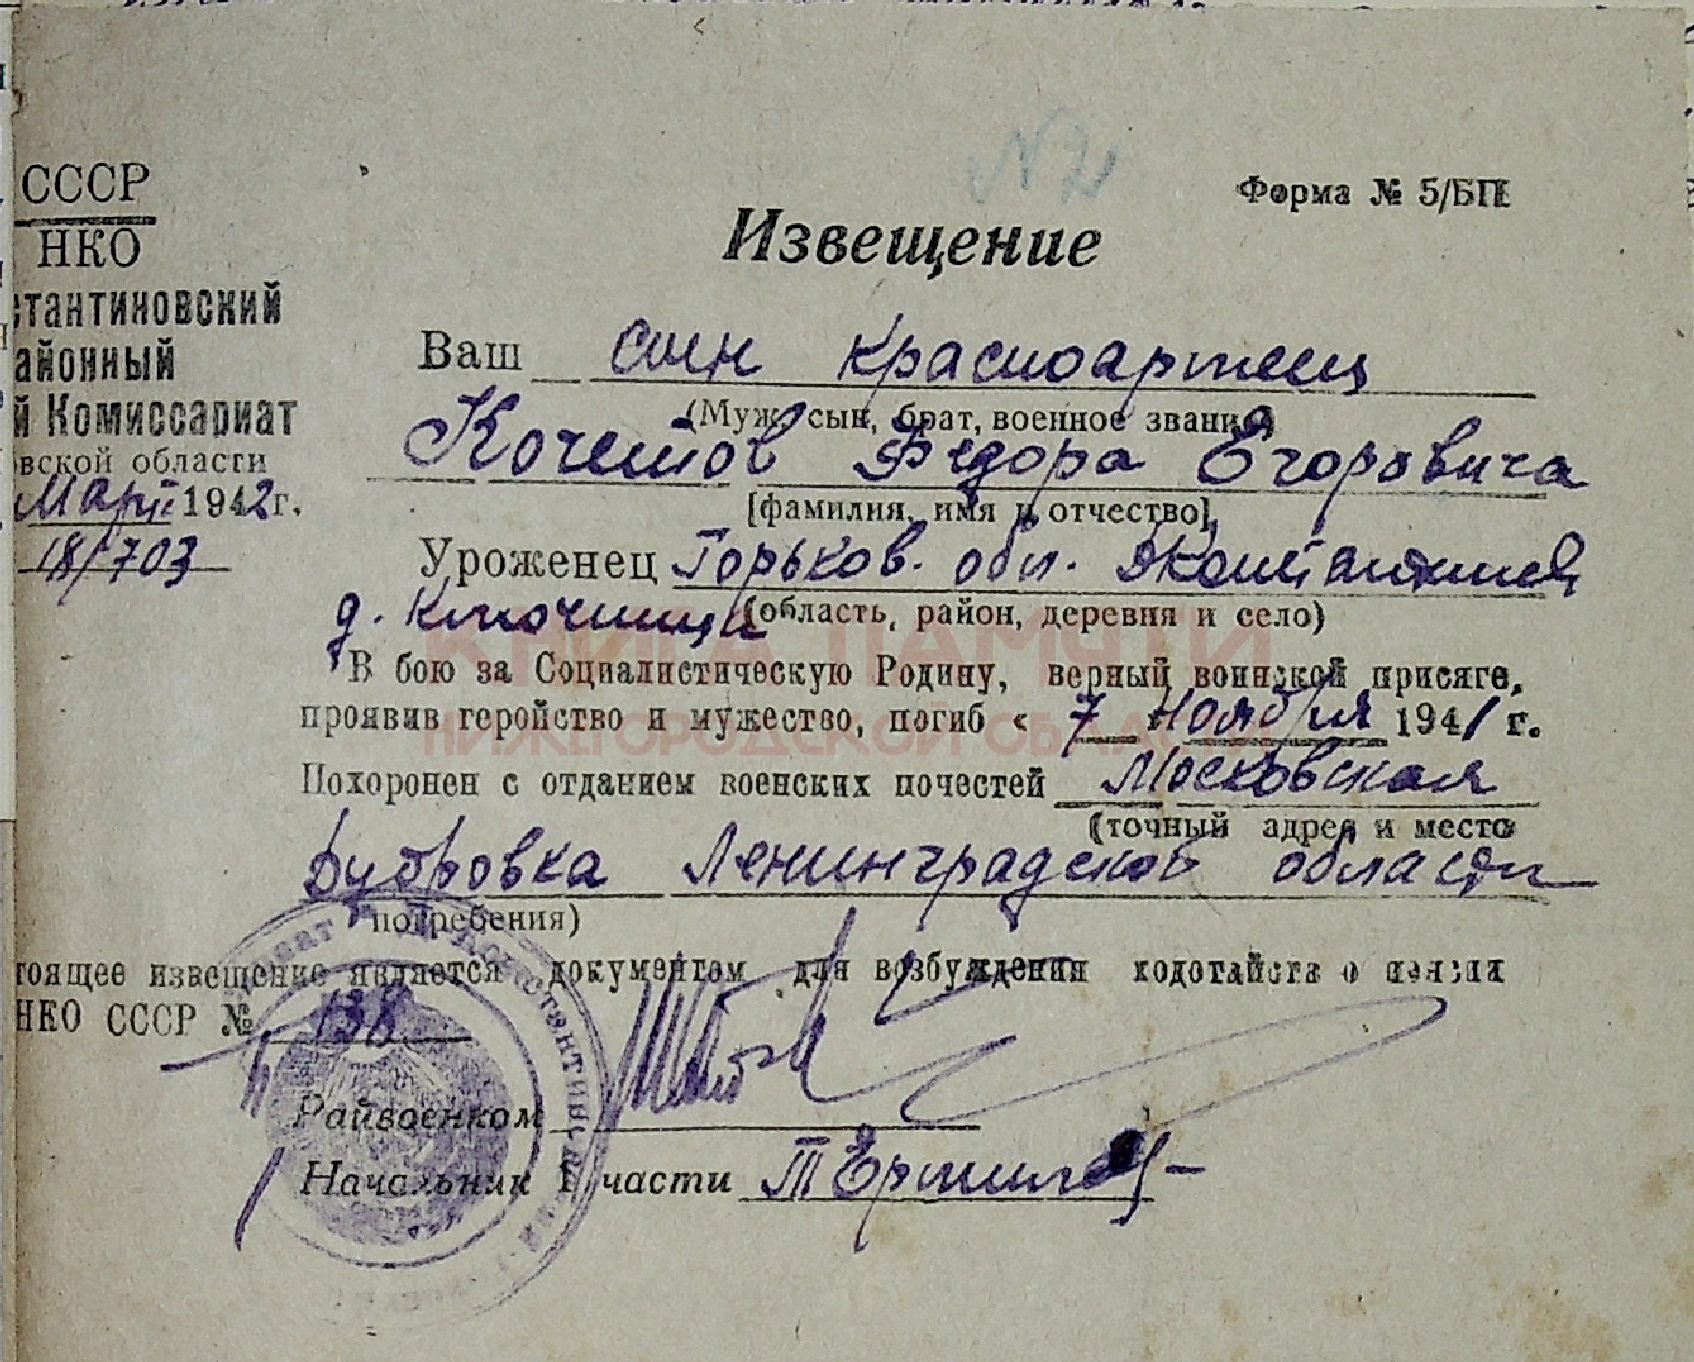 №2
СССР
Форма № 5/БП
НКО
Извещение
стантиновский
айонный
й Комиссариат
вской области
Март 1942 г.
18/703
Ваш сын красноармеец
(Муж, сын, брат, военное звание)
Кочетов Федора Егоровича
[фамилия, имя и отчество]
Уроженец Горьков. обл.
д. Ключищи (область, район, деревня и село)
КНИГА ПАМЯТИ
В бою за Социалистическую Родину, верный воинской присяге,
проявив геройство и мужество, погиб « 7 » Ноября 1941 г.
НИЖЕГОРОДСКОЙ ОБЛАСТИ
Похоронен с отданием военских почестей Московская
(точный адрес и место
Дубровка Ленинградской области
погребения)
тоящее извещение является документом для возбуждения ходотайства о пенсии
НКО СССР № 138
Райвоенком
Начальник 1 части